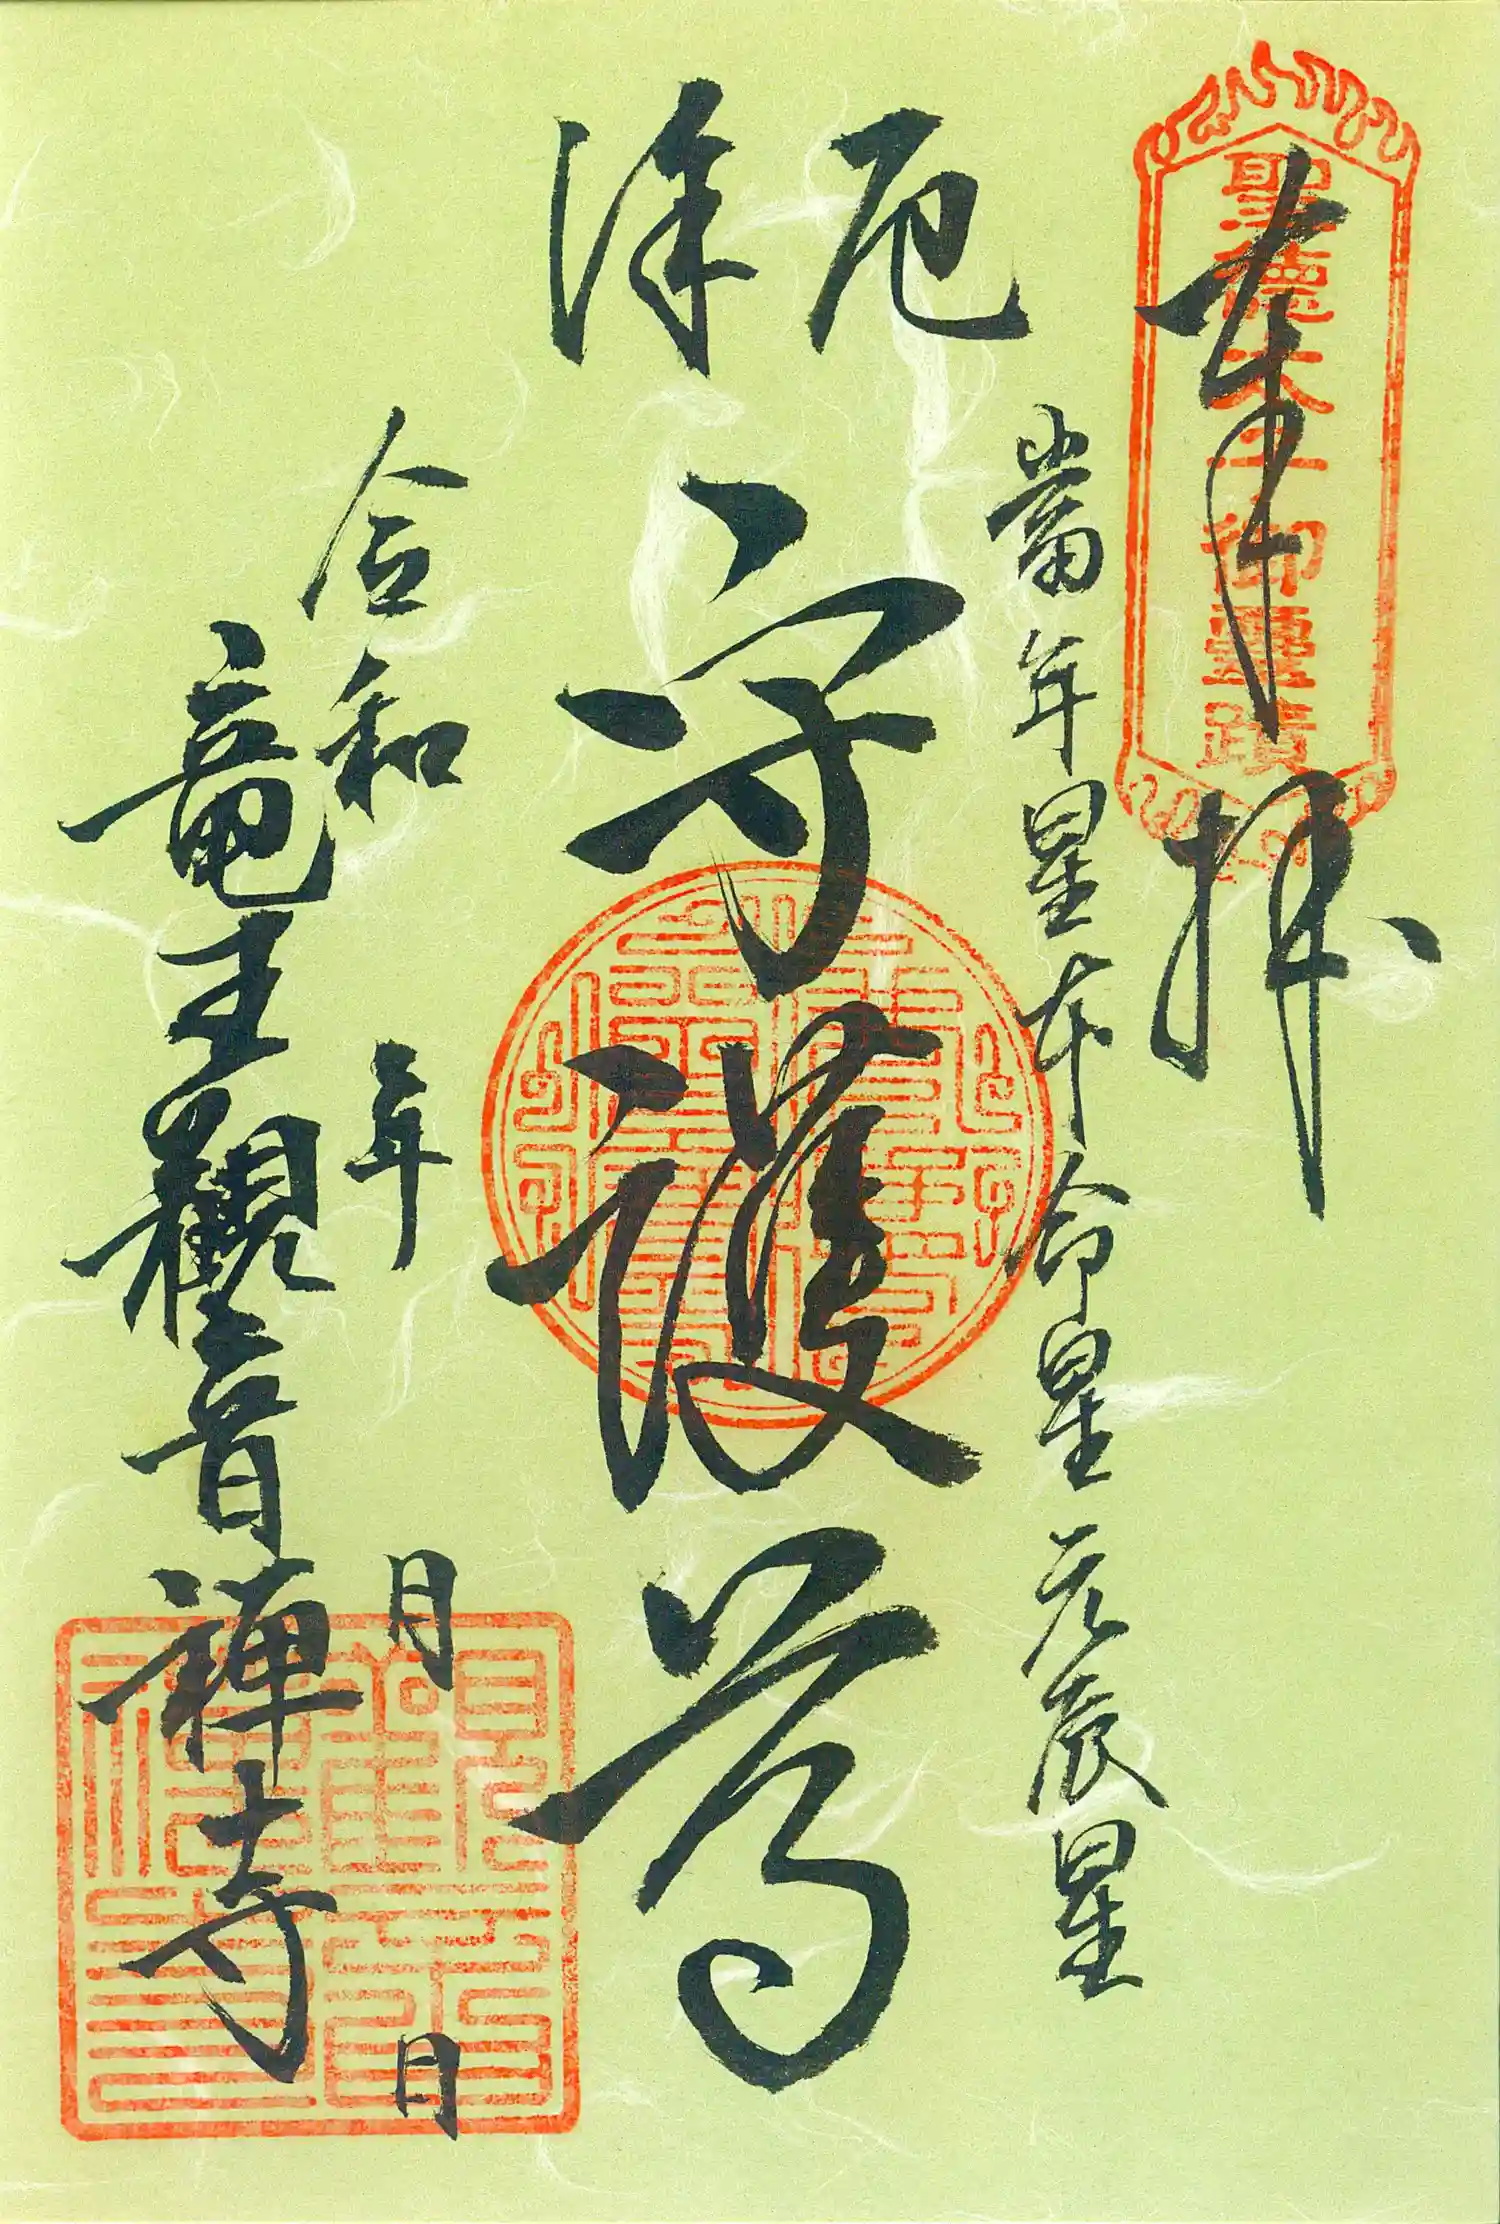 奉拝
聖徳太子御霊蹟
當年星本命星元辰星
厄除
守護尊
令和 年 月 日
竜王観音禅寺
観音禅寺